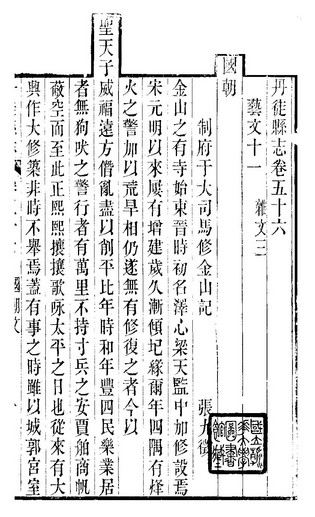 丹徒縣志卷五十六
藝文十一 雜文三
國朝
制府于大司馬修金山記 張九徵
金山之有寺始東晉時初名澤心梁天監中加修設焉
宋元明以來屢有增建歲久漸傾圮緣爾年四隅有烽
火之警加以荒旱相仍遂無有修復之者今以
聖天子威福遠方僭亂盡以創平比年時和年豐四民樂業居
者無狗吠之警行者有萬里不持寸兵之安賈舶商帆
蔽空而至此正熙熙攘攘歌咏太平之日也從來有大
興作大修築非時不舉焉蓋有事之時雖以城郭宮室